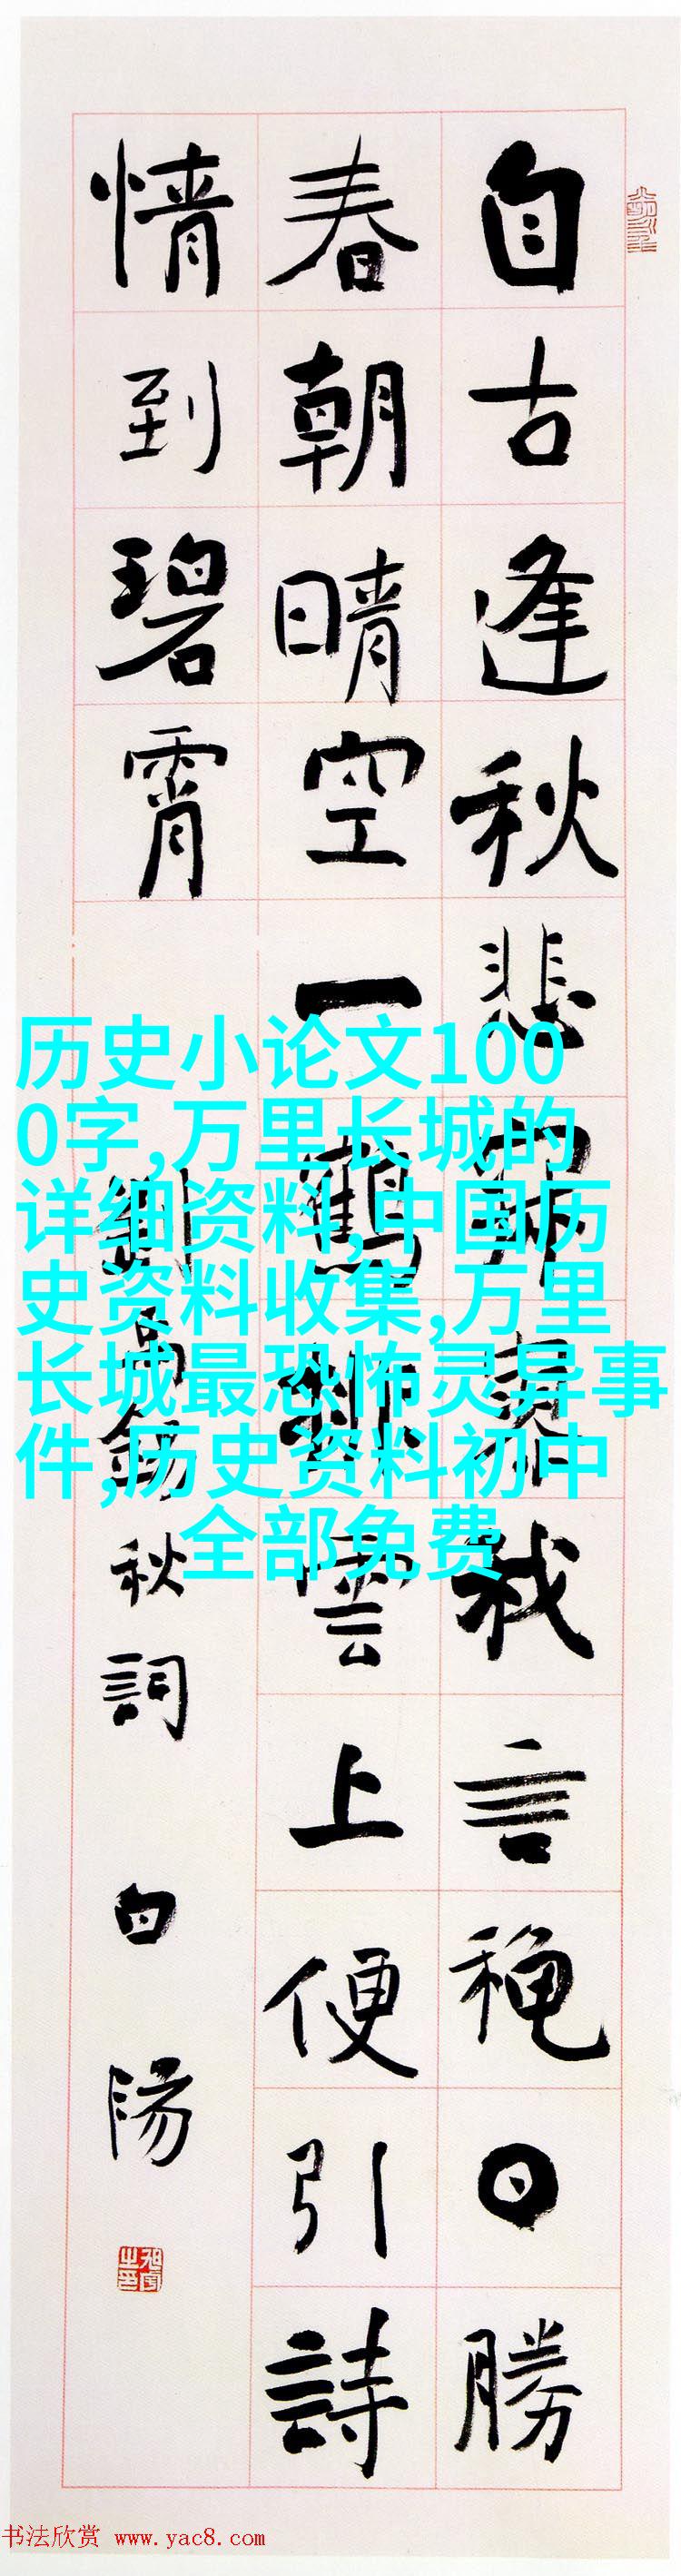 自古逢秋悲寂寥我言穐日勝
春朝晴空一鶴排雲上便引詩
情到碧霄
劉禹錫秋詞 白陽
历史小论文100
0字,万里长城的
详细资料,中国历
史资料收集,万里
长城最恐怖灵异事
件,历史资料初中
全部免费
书法欣赏 www.yac8.com